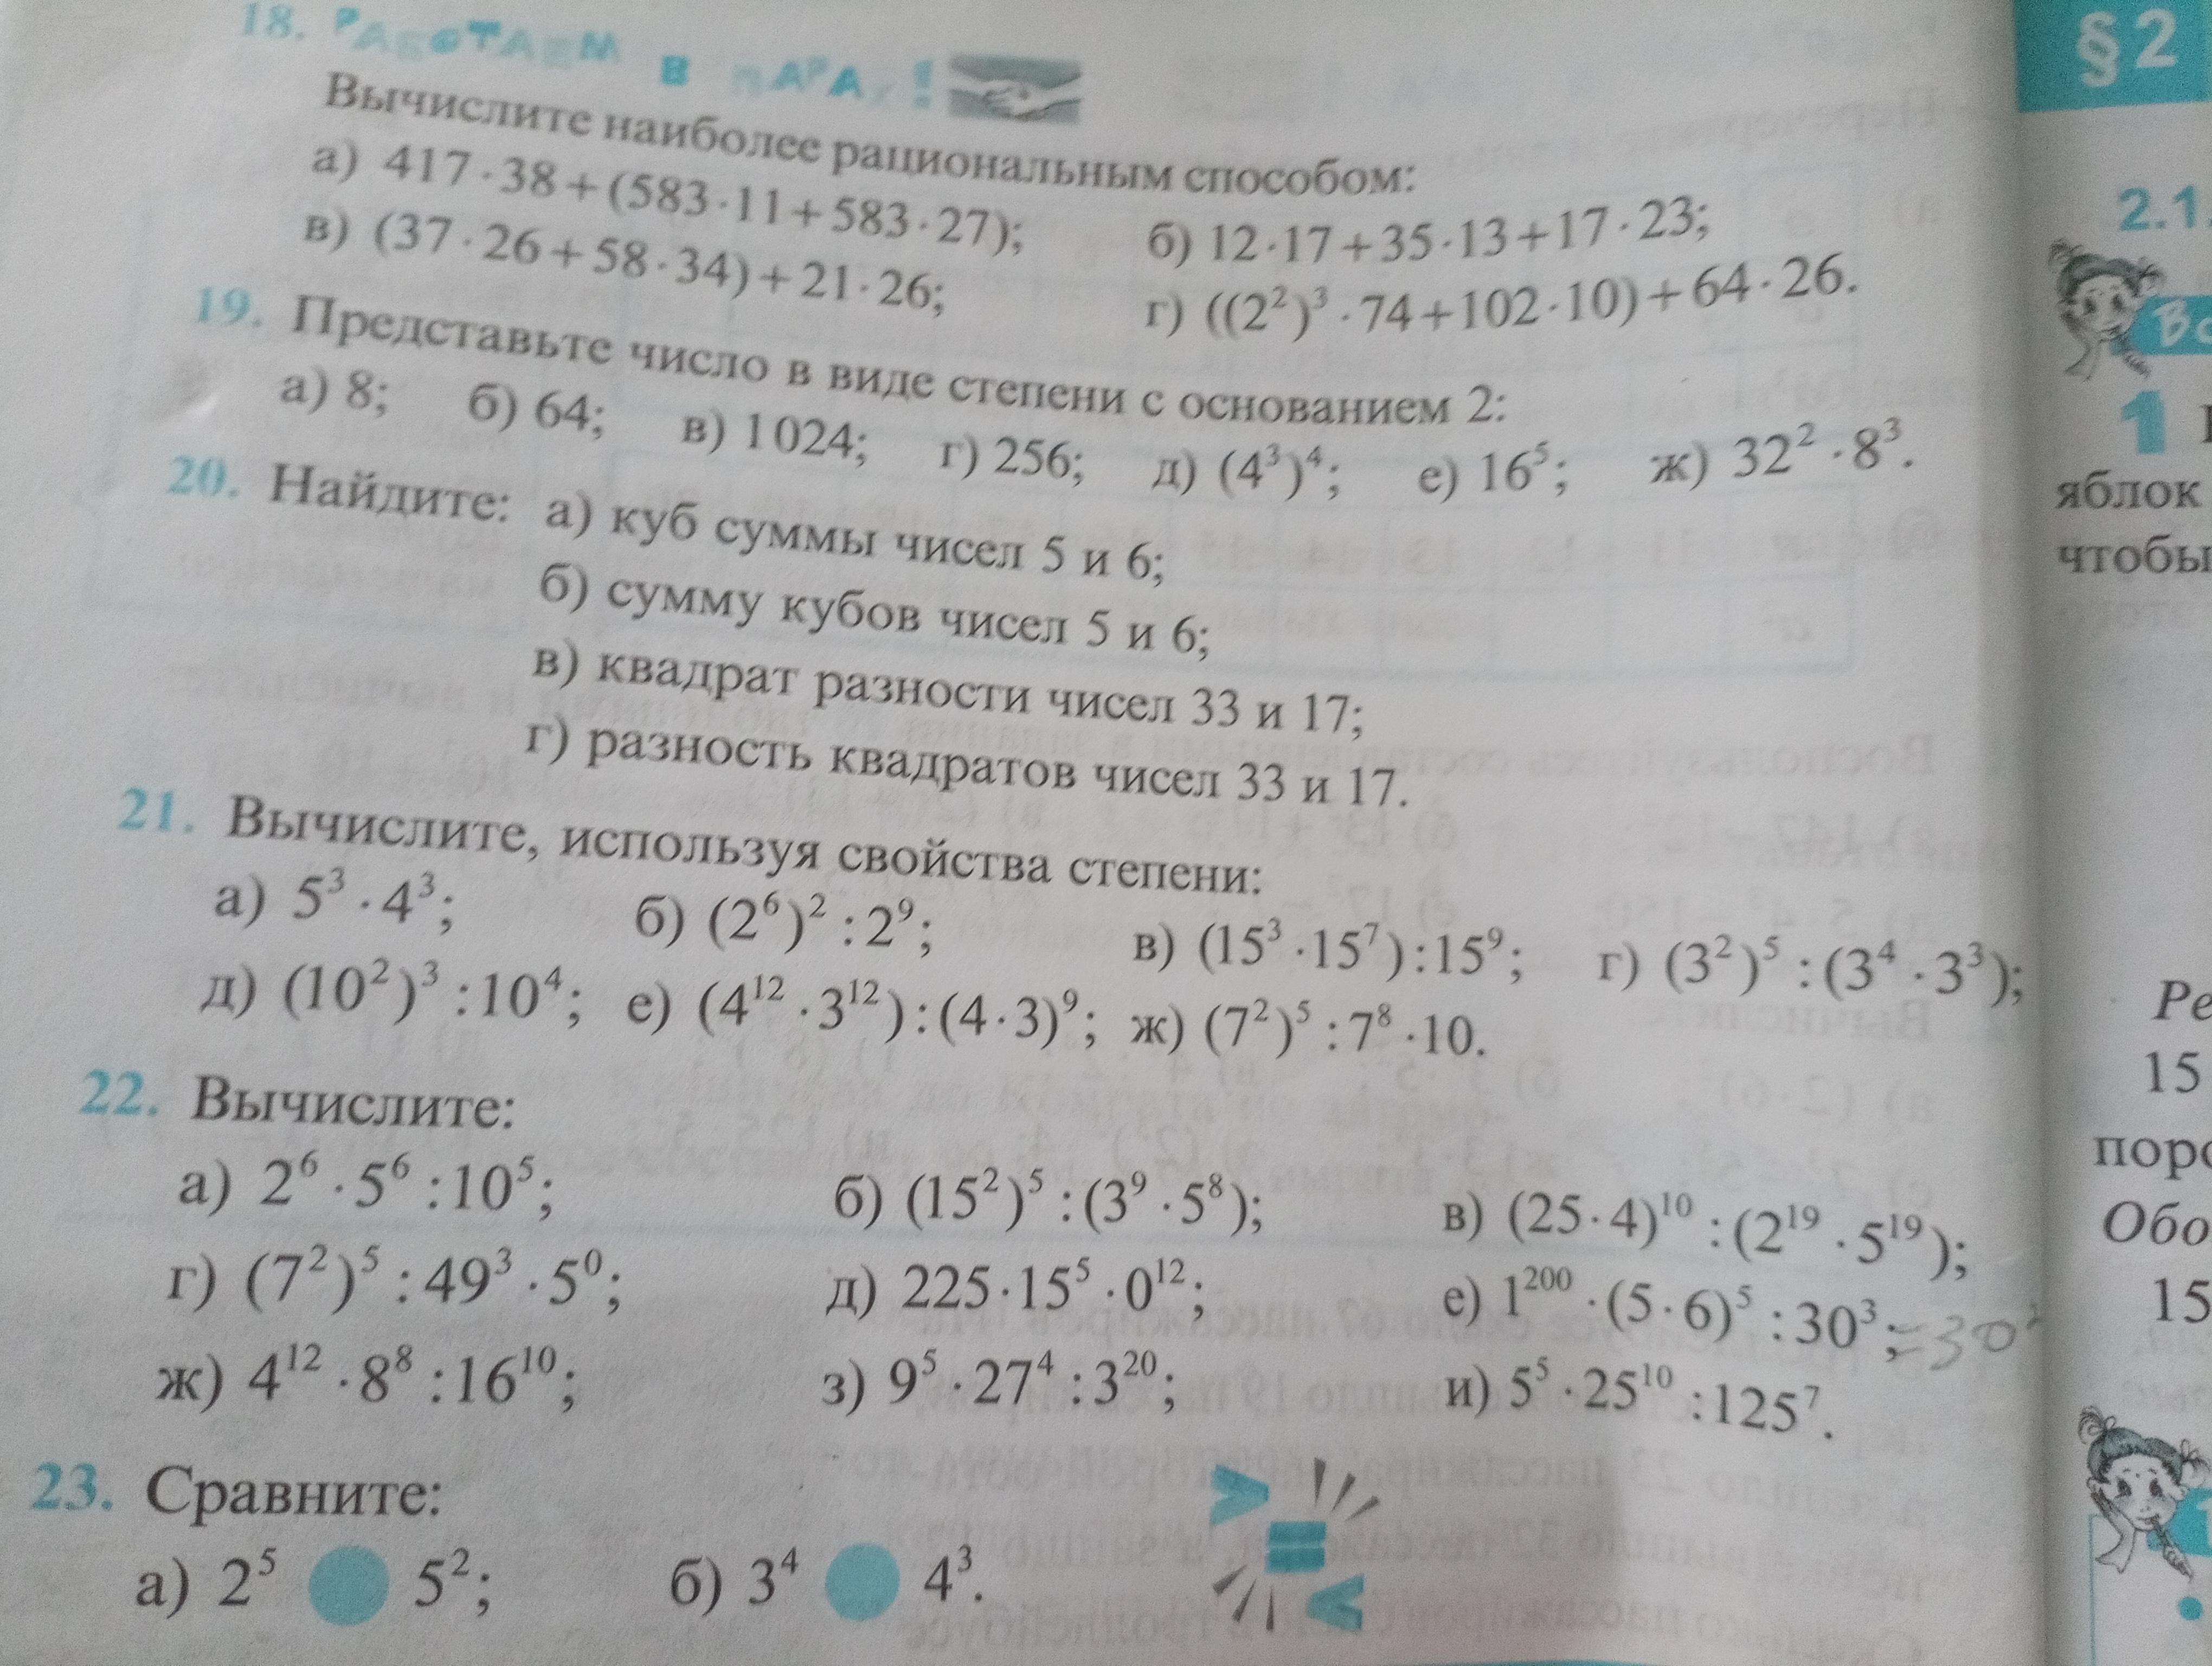 18. РАБОТАЕМ В ПАРАХ!
Вычислите наиболее рациональным способом:
а) 417·38+(583·11+583·27); б) 12·17+35·13+17·23;
в) (37·26+58·34)+21·26; г) ((2²)³·74+102·10)+64·26.
19. Представьте число в виде степени с основанием 2:
а) 8; б) 64; в) 1024; г) 256; д) (4³)⁴; е) 16⁵; ж) 32²·8³.
20. Найдите: а) куб суммы чисел 5 и 6;
б) сумму кубов чисел 5 и 6;
в) квадрат разности чисел 33 и 17;
г) разность квадратов чисел 33 и 17.
21. Вычислите, используя свойства степени:
а) 5³·4³; б) (2⁶)²:2⁹; в) (15³·15⁷):15⁹; г) (3²)⁵:(3⁴·3³);
д) (10²)³:10⁴; е) (4¹²·3¹²):(4·3)⁹; ж) (7²)⁵:7⁸·10.
22. Вычислите:
а) 2⁶·5⁶:10⁵; б) (15²)⁵:(3⁹·5⁸); в) (25·4)¹⁰:(2¹⁹·5¹⁹);
г) (7²)⁵:49³·5⁰; д) 225·15⁵·0¹²; е) 1²⁰⁰·(5·6)⁵:30³; =30²
ж) 4¹²·8⁸:16¹⁰; з) 9⁵·27⁴:3²⁰; и) 5⁵·25¹⁰:125⁷.
23. Сравните:
а) 2⁵ 5²; б) 3⁴ 4³.
> = <
§2
2.1.
1
яблок
чтобы
15
Обо
15